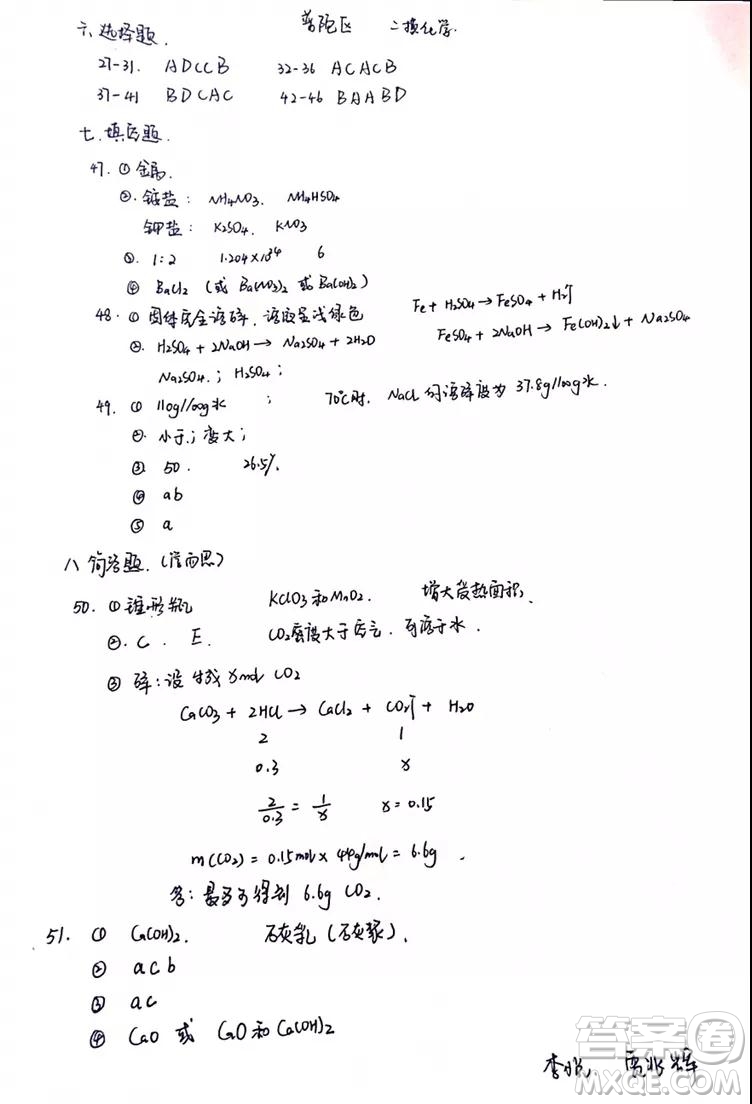 普陀区 二模化学
六、选择题.
27-31. ADCCB 32-36 ACACB
37-41 BDCAC 42-46 BAABD
七.填空题.
47. ①金属.
②.铵盐: NH4NO3. NH4HSO4
钾盐: K2SO4. KNO3
③. 1:2 1.204×10²⁴ 6
④ BaCl2 (或 Ba(NO3)2 或 Ba(OH)2)
48. ①固体完全溶解,溶液呈浅绿色 Fe + H2SO4 → FeSO4 + H2↑
FeSO4 + 2NaOH → Fe(OH)2↓ + Na2SO4
②. H2SO4 + 2NaOH → Na2SO4 + 2H2O
Na2SO4.; H2SO4;
49. ① 110g/100g水 ; 70℃时, NaCl的溶解度为37.8g/100g水.
②.小于.; 变大;
③. 50. 26.5%.
④ ab
⑤ a
八 简答题.
50. ①锥形瓶 KClO3和MnO2. 增大受热面积.
②. C. E. CO2密度大于空气,可溶于水.
③ 解:设生成x mol CO2
CaCO3 + 2HCl → CaCl2 + CO2↑ + H2O
2 1
0.3 x
2/0.3 = 1/x x = 0.15
m(CO2) = 0.15mol × 44g/mol = 6.6g.
答:最多可得到 6.6g CO2.
51. ① Ca(OH)2. 石灰乳(石灰浆).
② acb
③ ac
④ CaO 或 CaO和Ca(OH)2
答案圈
MXQE.COM